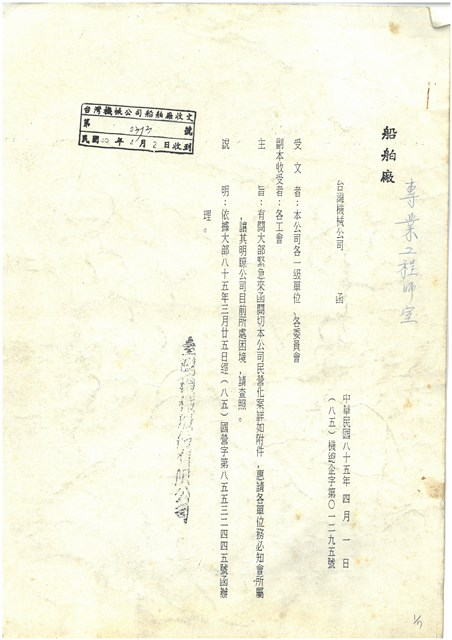 船舶廠
專業工程師室
台灣機械公司 函
中華民國八十五年四月一日
(八五)機總企字第〇一二九五號
受文者:本公司各一級單位、各委員會
副本收受者:各工會
主旨:有關大部緊急來函關切本公司民營化案詳如附件,惠請各單位務必知會所屬
,讓其明瞭公司目前所處困境,請查照。
說明:依據大部八十五年三月廿五日經(八五)國營字第八五五三二四四五號函辦
理。
台灣機械公司船舶廠收文
第 號
民國 年 月2日收到
1/7